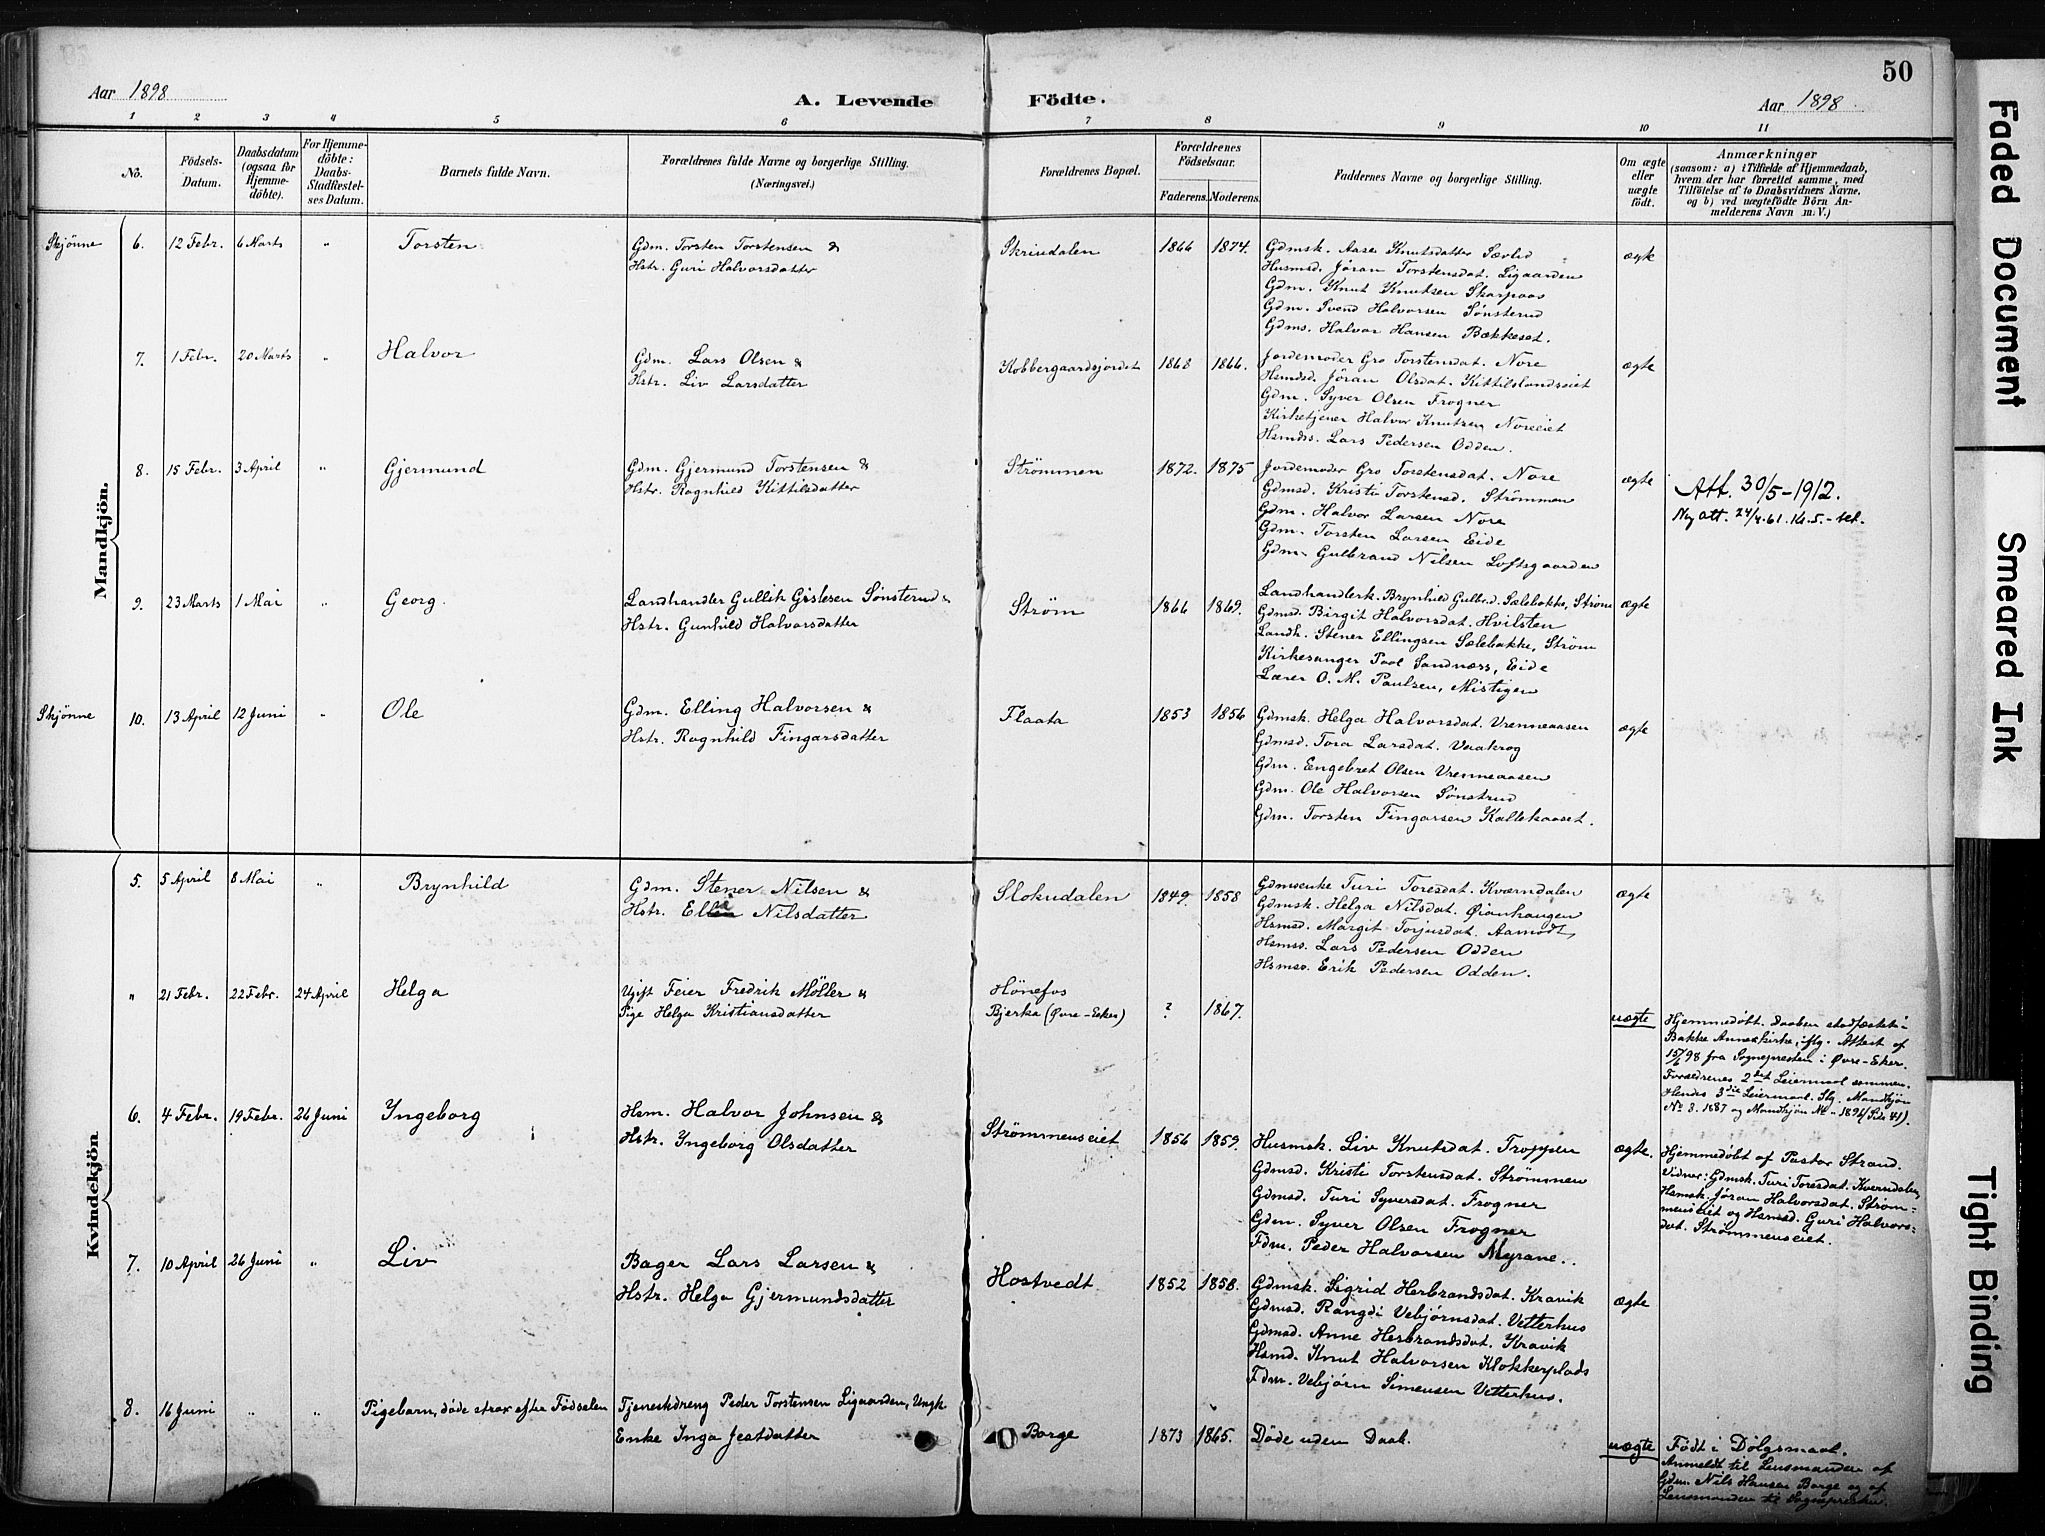 50
Aar 1898
A. Levende Födte.
Aar 1898
1 2 3 4 5 6 7 8 9 10 11
No.
Födsels-Datum.
Daabsdatum (ogsaa for Hjemmedöbte).
For Hjemmedöbte: Daabs-Stadfæstelses Datum.
Barnets fulde Navn.
Forældrenes fulde Navne og borgerlige Stilling. (Næringsvei.)
Forældrenes Bopæl.
Forældrenes Födselsaar.
Faderens. Moderens.
Faddernes Navne og borgerlige Stilling.
Om ægte eller uægte födt.
Anmærkninger
(saasom: a) i Tilfælde af Hjemmedaab,
hvem der har forrettet samme, med
Tilföielse af to Daabsvidners Navne,
og b) ved uægtefödte Börn Anmelderens Navn m. V.)
Mandkjön.
Skjønne 6. 12 Febr. 6 Marts " Torsten
Gdm. Torsten Torstensen &
Hstr. Guri Halvorsdatter
Skrindalen 1866 1874.
Gdmsk. Aase Knutsdatter Sævlid
Husmsd. Jøran Torstensdat. Ligaarden
Gdm. Knut Knutsen Skarpaas
Gdm. Svend Halvorsen Sønsterud
Gdms. Halvor Hansen Bækkeset.
ægte
7. 1 Febr. 20 Marts " Halvor
Gdm. Lars Olsen &
Hstr. Liv Larsdatter
Kobbergaardsjordet 1868 1866.
Jordemoder Gro Torstensdat. Nore
Hsmdsd. Jøran Olsdat. Kittilslandseiet
Gdm. Syver Olsen Frogner
Kirketjener Halvor Knutsen Noreeiet
Hsmds. Lars Pedersen Odden.
ægte
8. 15 Febr. 3 April " Gjermund
Gdm. Gjermund Torstensen &
Hstr. Ragnhild Kittilsdatter
Strömmen 1872. 1875
Jordemoder Gro Torstensdat. Nore
Gdmsd. Kristi Torstensd. Strömmen
Gdm. Halvor Larsen Nore
Gdm. Torsten Larsen Eide
Gdm. Gulbrand Nilsen Loftsgaarden
ægte
Att. 30/5-1912.
Ny att. 24/4.61. Kr. 5.-
9. 23 Marts 1 Mai " Georg
Landhandler Gullik Gislesen Sønsterud &
Hstr. Gunhild Halvorsdatter
Strøm 1866 1869.
Landhandlerk. Brynhild Gulbr.d. Sælebakke, Strøm
Gdmsd. Birgit Halvorsdat. Hvilsten
Landh. Stener Ellingsen Sælebakke, Strøm
Kirkesanger Paal Sandnæss, Eide
Lærer O. M. Paulsen, Mistigen
ægte
Skjønne 10. 13 April 12 Juni " Ole
Gdm. Elling Halvorsen &
Hstr. Ragnhild Fingarsdatter
Flaata 1853 1856
Gdmsk. Helga Halvorsdat. Vrenneaasen
Gdmsd. Tora Larsdat. Vaakrog
Gdm. Engebret Olsen Vrenneaasen
Gdm. Ole Halvorsen Sønstrud
Gdm. Torsten Fingarsen Kallekaaset.
ægte
Kvindekjön.
5. 5 April 8 Mai " Brynhild
Gdm. Stener Nilsen &
Hstr. Nilsdatter
Slokudalen 1849. 1858
Gdmsenke Turi Toresdat. Kværndalen
Gdmsk. Helga Nilsdat. Øianhaugen
Hsmsd. Margit Torjusdat. Aamodt,
Hsmss. Lars Pedersen Odden
Hsmss. Erik Pedersen Odden.
ægte
" 21 Febr. 22 Febr. 24 April Helga
Ugift Feier Fredrik Möller &
Pige Helga Kristiansdatter
Hönefos
Bjerke (Øvre-Eker) ? 1867.
uægte
Hjemmedøbt. Daaben stadfæstet i
Bakke Anneskirke, iflg. Attest af
15/6 98 fra Sognepresten i Øvre-Eker.
Forældrenes 2det Leiermaal sammen.
Hendes 3die Leiermaal. Slg. Mandkjøn
No 3. 1887 og Mandkjøn (Side 41).
6. 4 Febr. 19 Febr. 26 Juni Ingeborg
Hsm. Halvor Johnsen &
Hstr. Ingeborg Olsdatter
Strömmenseiet 1856 1859.
Husmsk. Liv Knutsdat. Troppen
Gdmsd. Kristi Torstensdat. Strömmen
Gdmsd. Turi Syversdat. Frogner
Gdm. Syver Olsen Frogner
Fdm. Peder Halvorsen Myrane..
ægte.
Hjemmedøbt af Pastor Strand.
Vidner: Gdmsk. Turi Toresdat. Kverndalen,
Hsmsk. Jöran Halvorsdat. Ström-
menseiet og Hsmsd. Guri Halvors-
dat. Strömmenseiet.
7. 10 April 26 Juni " Liv
Bager Lars Larsen &
Hstr. Helga Gjermundsdatter
Hostvedt 1852 1858.
Gdmsk. Sigrid Herbrandsdat. Kravik
Gdmsd. Rangdi Vebjørnsdat. Vetterhus
Gdmsd. Anne Herbrandsdat. Kravik
Hsmd. Knut Halvorsen Klokkerplads
Fdm. Vebjørn Simensen Vetterhus.
ægte
8. 16 Juni " " Pigebarn, døde strax efter Födselen
Tjenestdreng Peder Torstensen Ligaarden, Ungk.
Enke Inga Jeatdatter
Borge 1873 1865.
Døde uden Daab.
uægte
Födt i Dølgsmaal.
Anmeldt til Lensmanden af
Gdm. Nils Hansen Borge og af
Lensmanden til Sognepresten.
Faded Document
Smeared Ink
Tight Binding